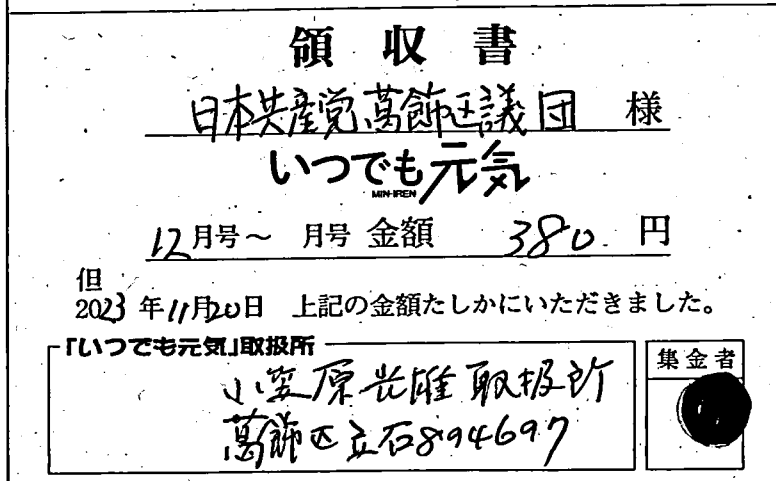 領収書
日本共産党葛飾区議団 様
いつでも元気
MIN-IREN
12月号～ 月号 金額 380 円
但
2023年11月20日 上記の金額たしかにいただきました。
「いつでも元気」取扱所
集金者
小笠原光雄取扱所
葛飾区立石8-94697